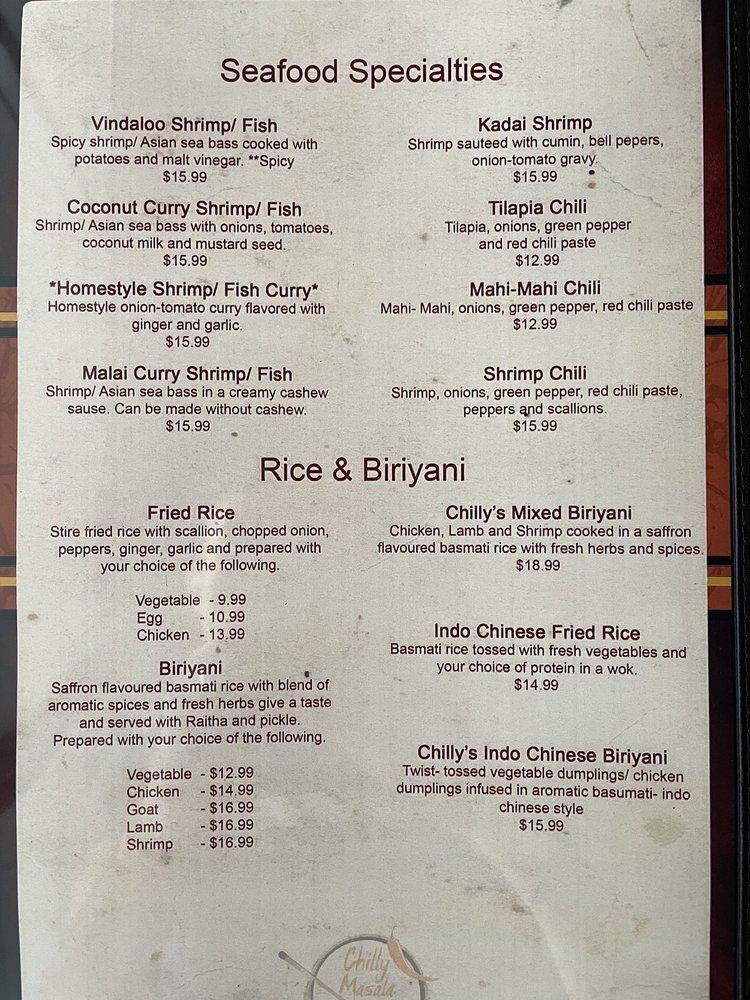 Seafood Specialties
Vindaloo Shrimp/ Fish
Spicy shrimp/ Asian sea bass cooked with
potatoes and malt vinegar. **Spicy
$15.99
Coconut Curry Shrimp/ Fish
Shrimp/ Asian sea bass with onions, tomatoes,
coconut milk and mustard seed.
$15.99
*Homestyle Shrimp/ Fish Curry*
Homestyle onion-tomato curry flavored with
ginger and garlic.
$15.99
Malai Curry Shrimp/ Fish
Shrimp/ Asian sea bass in a creamy cashew
sause. Can be made without cashew.
$15.99
Kadai Shrimp
Shrimp sauteed with cumin, bell pepers,
onion-tomato gravy.
$15.99
Tilapia Chili
Tilapia, onions, green pepper
and red chili paste
$12.99
Mahi-Mahi Chili
Mahi- Mahi, onions, green pepper, red chili paste
$12.99
Shrimp Chili
Shrimp, onions, green pepper, red chili paste,
peppers and scallions.
$15.99
Rice & Biriyani
Fried Rice
Stire fried rice with scallion, chopped onion,
peppers, ginger, garlic and prepared with
your choice of the following.
Vegetable - 9.99
Egg - 10.99
Chicken - 13.99
Biriyani
Saffron flavoured basmati rice with blend of
aromatic spices and fresh herbs give a taste
and served with Raitha and pickle.
Prepared with your choice of the following.
Vegetable - $12.99
Chicken - $14.99
Goat - $16.99
Lamb - $16.99
Shrimp - $16.99
Chilly's Mixed Biriyani
Chicken, Lamb and Shrimp cooked in a saffron
flavoured basmati rice with fresh herbs and spices.
$18.99
Indo Chinese Fried Rice
Basmati rice tossed with fresh vegetables and
your choice of protein in a wok.
$14.99
Chilly's Indo Chinese Biriyani
Twist- tossed vegetable dumplings/ chicken
dumplings infused in aromatic basumati- indo
chinese style
$15.99
Chilly
Masala